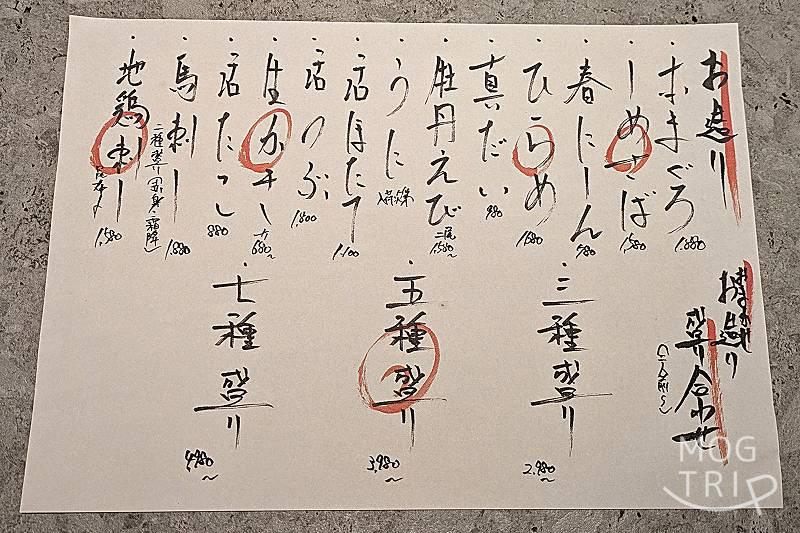 お造り
・本まぐろ 1,880
・しめさば 1,580
・春にしん 980
・ひらめ 1,680
・真だい 980
・牡丹えび 二尾 1,580〜
・うに
・活ほたて 1,100
・活つぶ 1,800
・生かき 一ヶ 680〜
・活たこ 880
・馬刺し 1,880
二種盛り（赤身・霜降）
・地鶏刺し 1,580
お造り
盛り合わせ
（二人前〜）
・三種盛り 2,980〜
・五種盛り 3,980〜
・七種盛り 4,980〜
MOG
TRIP